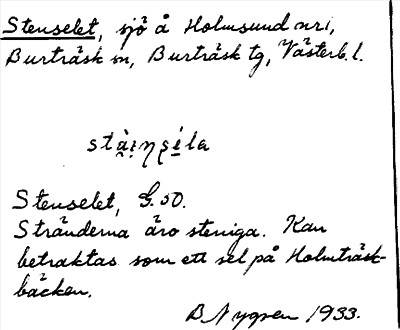 Stenselet, sjö å Holmsund nri,
Burträsk sn, Burträsk tg, Västerb. l.
stài̯ŋsé̱la
Stenselet, G. 50.
Stränderna äro steniga. Kan
betraktas som ett sel på Holmträsk-
bäcken.
B Nygren 1933.